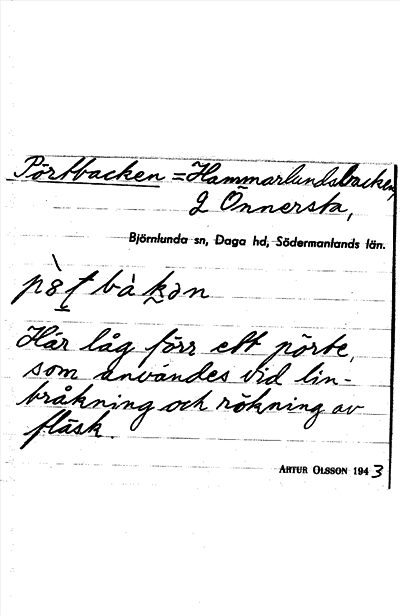 Pörtbacken = Hammarlundsbacken,
2 Önnersta,
Björnlunda sn, Daga hd, Södermanlands län.
Här låg förr ett pörte,
som användes vid lin-
bråkning och rökning av
fläsk.
ARTUR OLSSON 1943